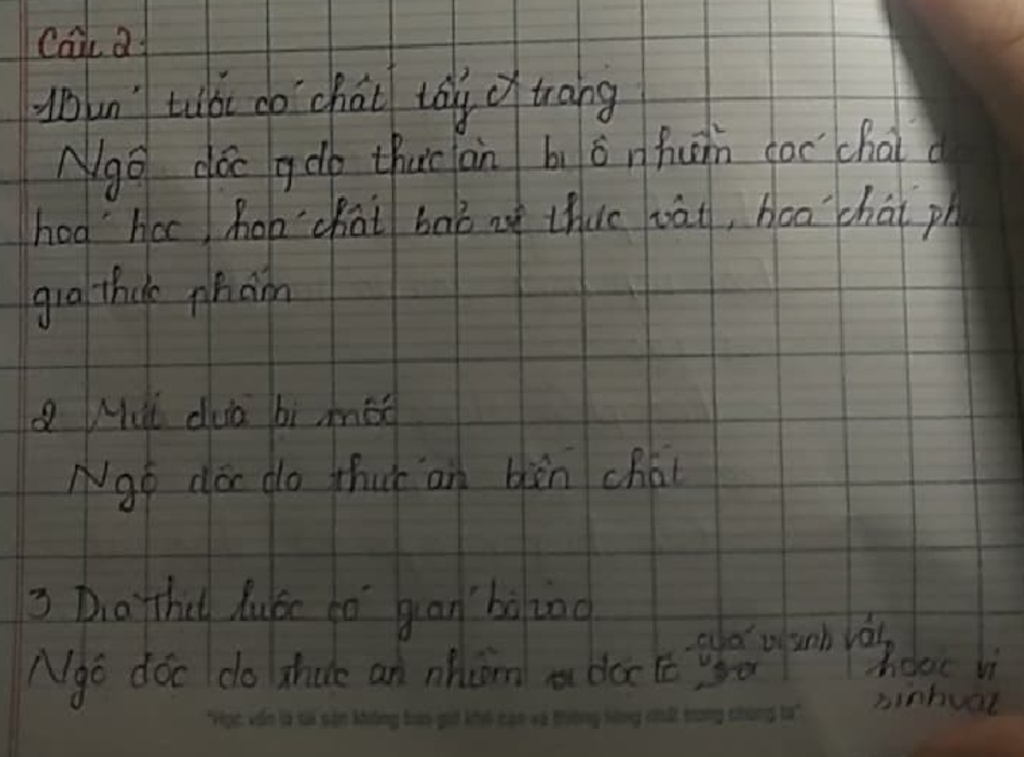 Câu 2:
1 Bún tươi có chất tẩy trắng
Ngộ độc do thức ăn bị ô nhiễm các chất
hoá học, hoá chất bảo vệ thực vật, hoá chất
gia thực phẩm
2 Mứt dừa bị mốc
Ngộ độc do thức ăn biến chất
3 Dĩa thịt luộc có gián bò vào
của vi sinh vật
Ngộ độc do thức ăn nhiễm độc tố hoặc vi
sinh vật
"Học vấn là tài sản không bao giờ khô cạn và thiêng liêng nhất trong chúng ta".